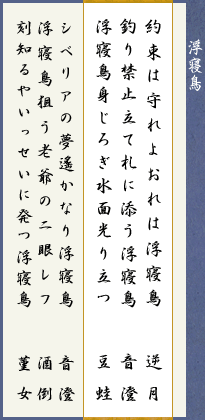 浮寝鳥
約束は守れよおれは浮寝鳥　逆月
釣り禁止立て札に添う浮寝鳥　音澄
浮寝鳥身じろぎ水面光り立つ　豆蛙
シベリアの夢遙かなり浮寝鳥　音澄
浮寝鳥狙う老爺の二眼レフ　酒倒
刻知るやいっせいに発つ浮寝鳥　菫女